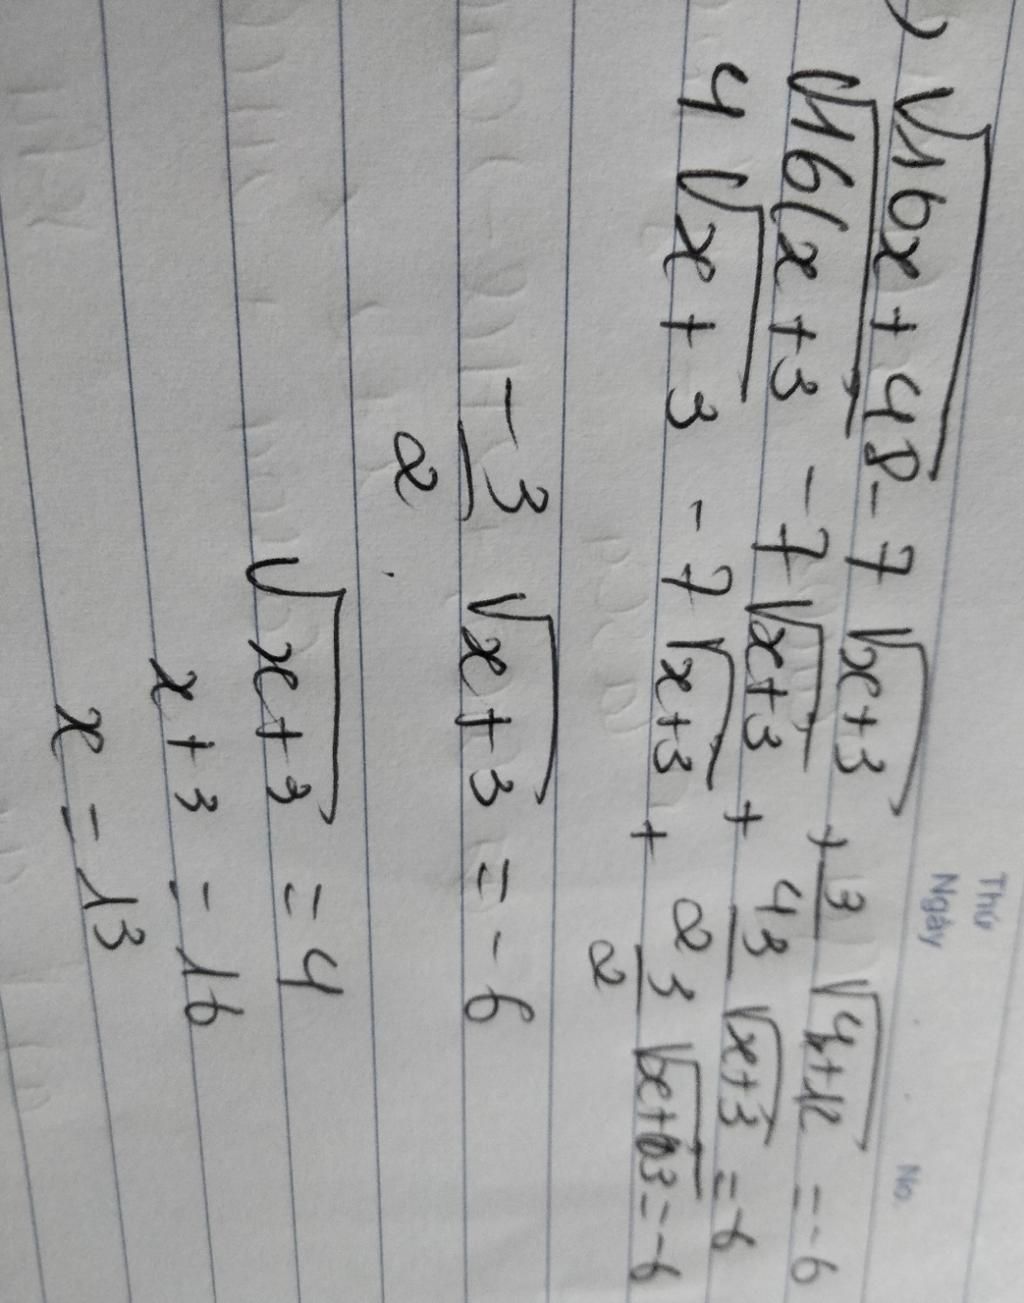 Thứ
Ngày No.
) √16x + 48 - 7 √x+3 + 3/4 √4x+12 = -6
√16(x+3 - 7 √x+3 + 3/2 √x+3 = -6
4 √x+3 - 7 √x+3 + 3/2 √x+3 = -6
-3/2 √x+3 = -6
√x+3 = 4
x+3 = 16
x = 13